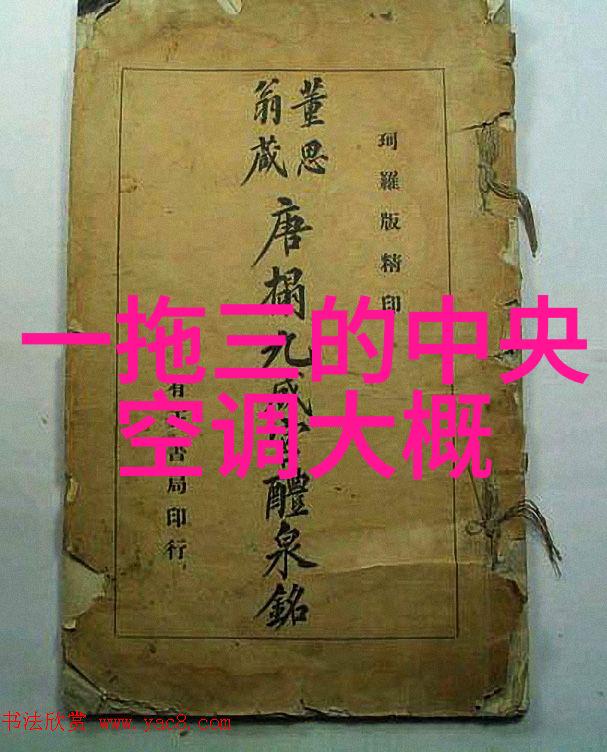 珂羅版精印
董思
翁蔵
唐搨九成醴泉銘
有書局印行
一拖三的中央
空调大概
书法欣赏 www.yac8.com